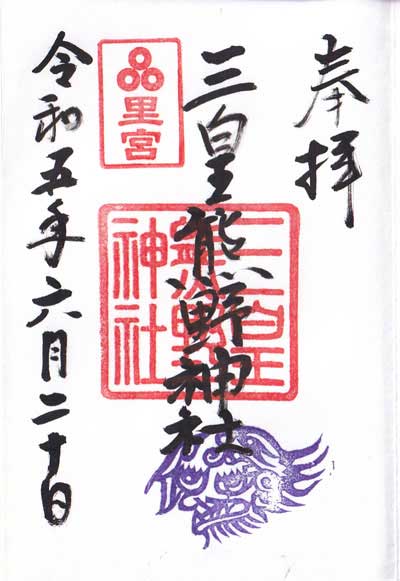 奉拝
三皇熊野神社
三皇熊野神社
里宮
令和五年六月二十日